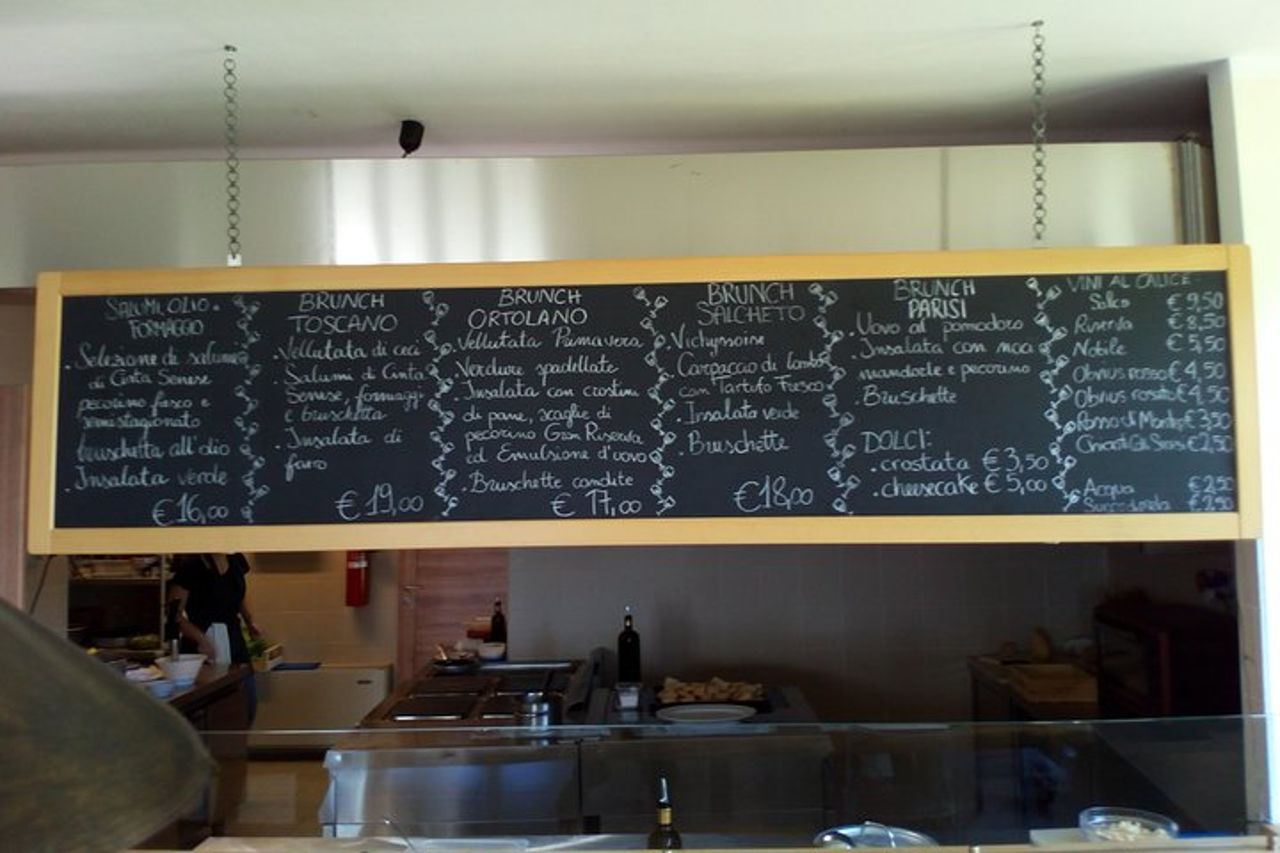 SALUMI, OLIO e
FORMAGGIO
. Selezione di salumi
di Cinta Senese
pecorino fresco e
semistagionato
bruschetta all'olio
. Insalata verde
€16,00
BRUNCH
TOSCANO
. Vellutata di ceci
. Salumi di Cinta
Senese, formaggi
e bruschetta
. Insalata di
farro
€19,00
BRUNCH
ORTOLANO
. Vellutata Primavera
. Verdure spadellate
. Insalata con crostini
di pane, scaglie di
pecorino Gran Riserva
ed Emulsione d'uovo
. Bruschette condite
€17,00
BRUNCH
SALCHETO
. Vichyssoise
. Carpaccio di lombo
con Tartufo Fresco
. Insalata verde
. Bruschette
€18,00
BRUNCH
PARISI
. Uovo al pomodoro
. Insalata con noci
mandorle e pecorino
. Bruschette
DOLCI:
. crostata €3,50
. cheesecake €5,00
VINI AL CALICE
Salco €9,50
Riserva €8,50
Nobile €5,50
Obvius rosso €4,50
Obvius rosato €4,50
Rosso di Montep. €3,50
Chianti Colli Senesi €2,50
Acqua €2,50
Succo di mela €2,50